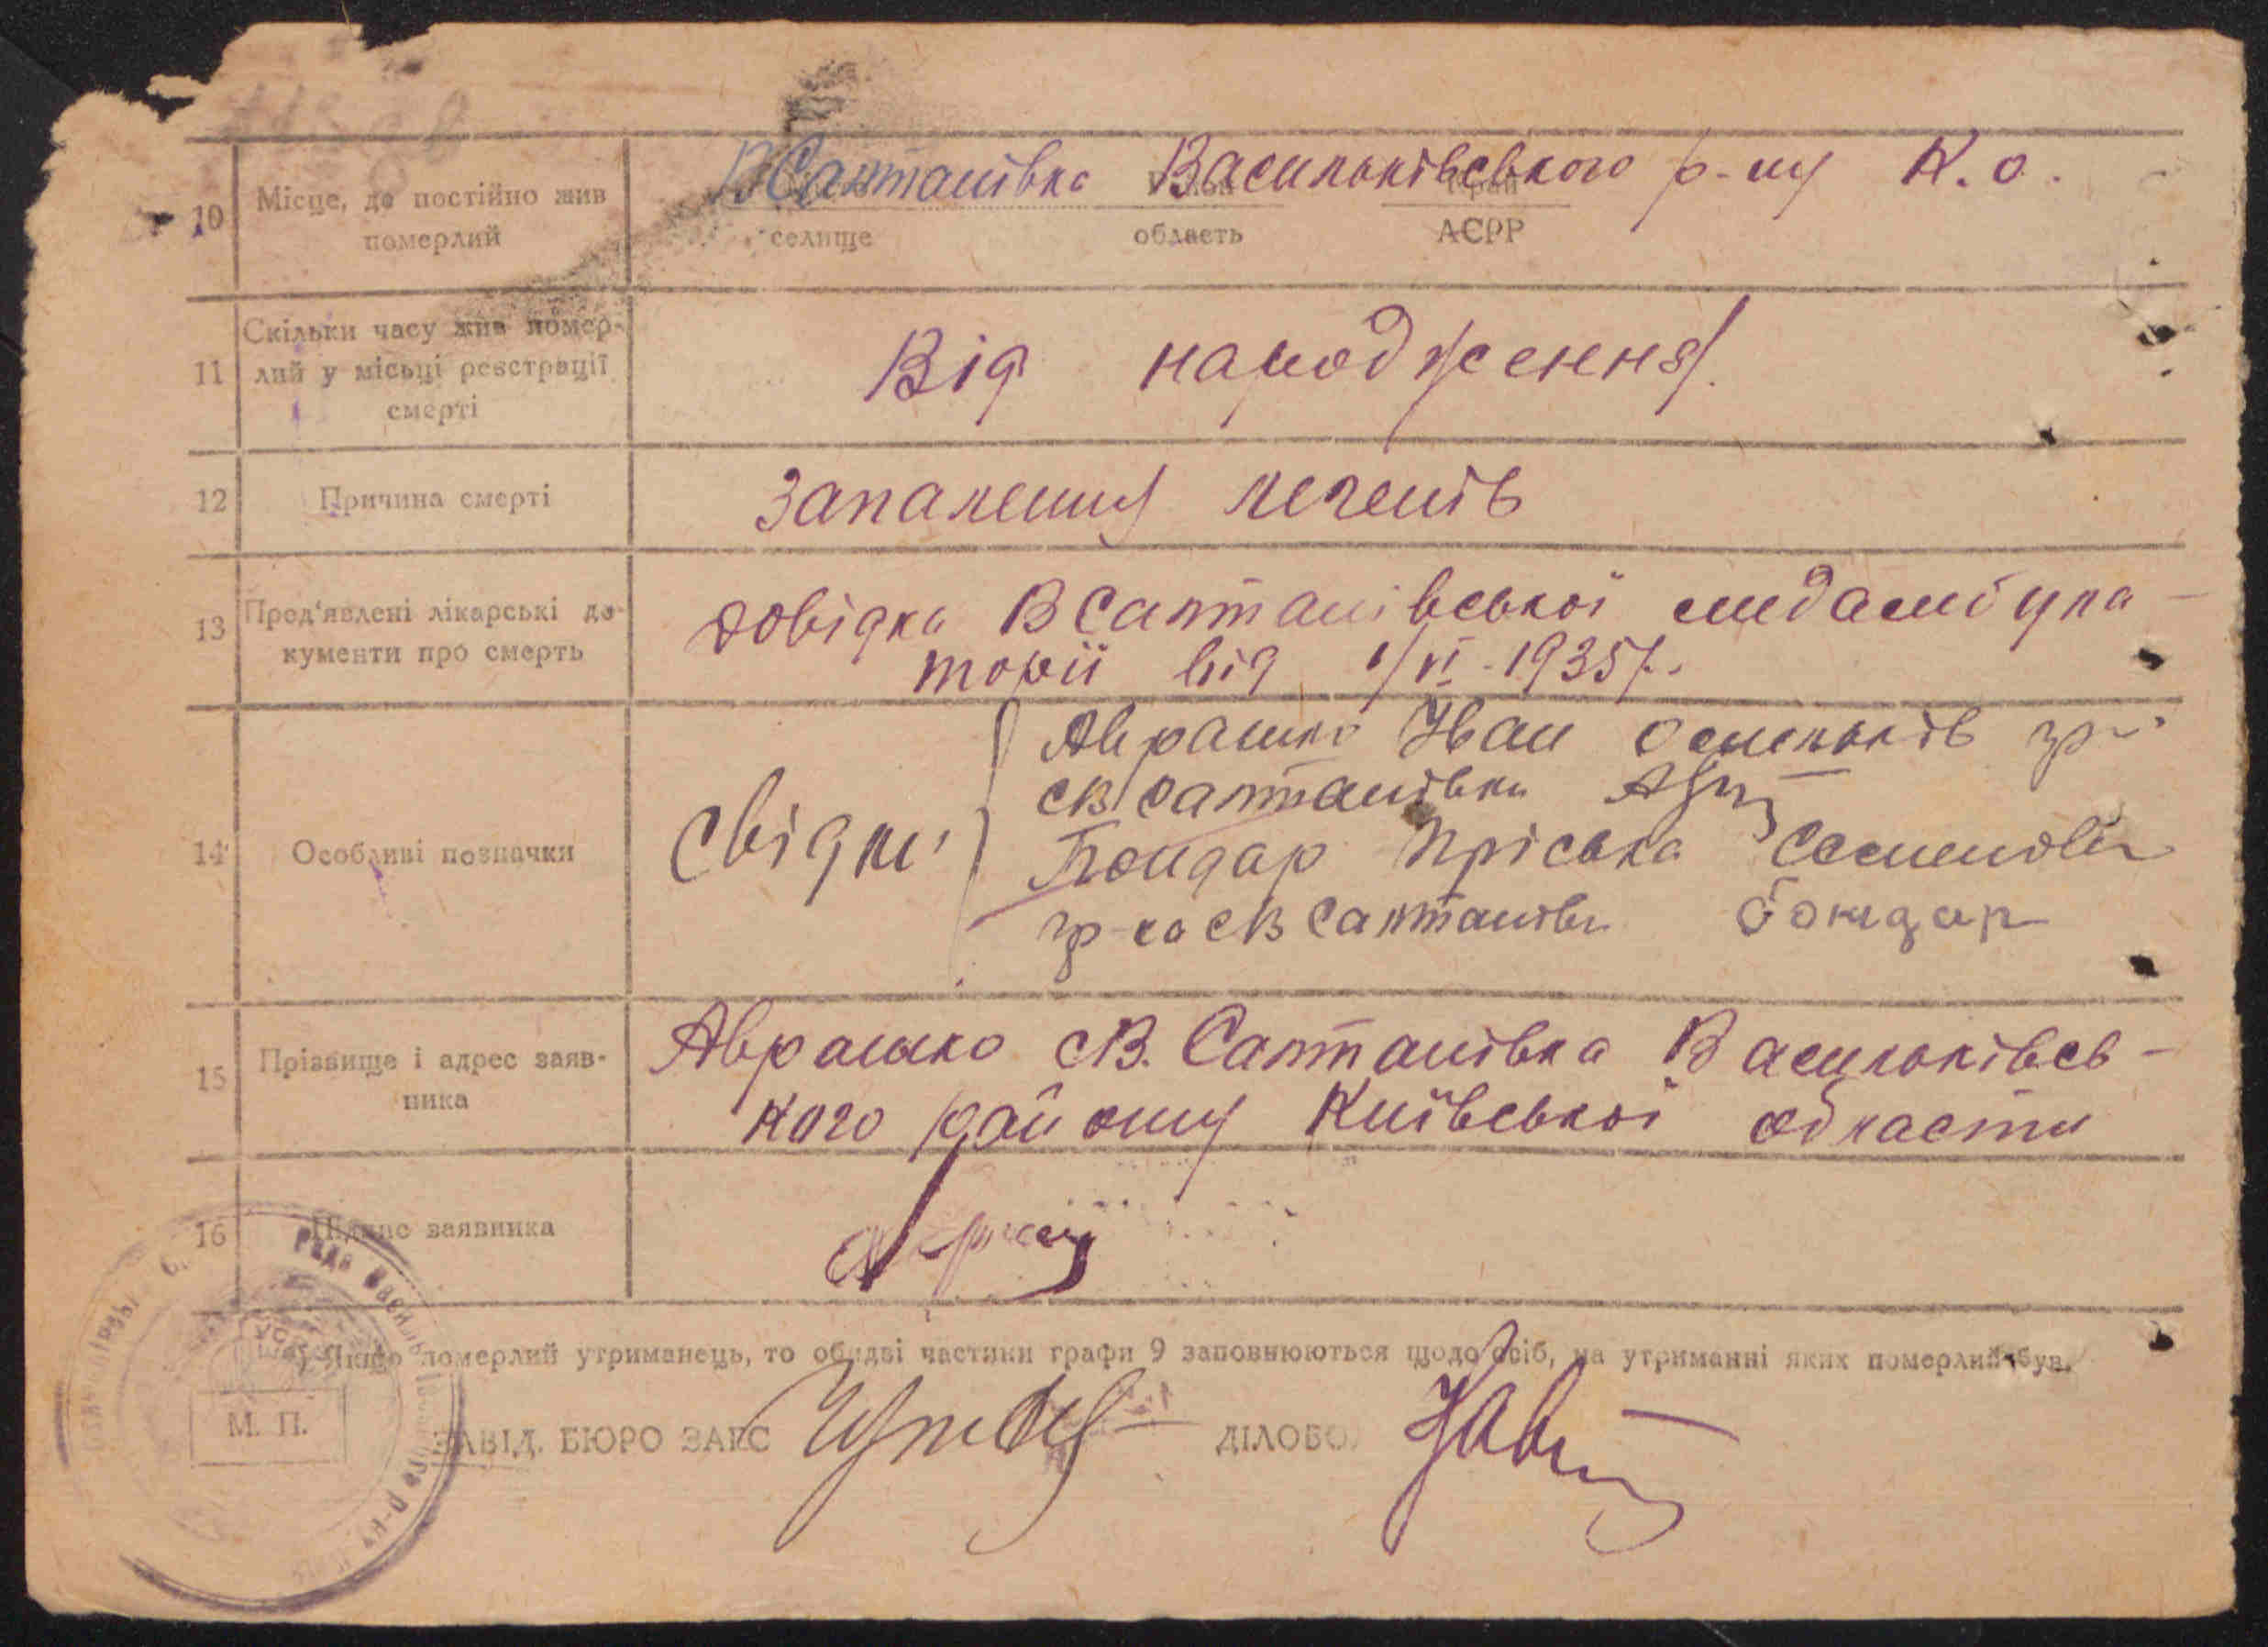 10 Місце, де постійно жив померлий
В Салтанівка Васильківського р-ну К. о.
селище область край АСРР
11 Скільки часу жив помер-
лий у місьці реєстрації
смерті
Від народження.
12 Причина смерті
Запалення легенів
13 Пред'явлені лікарські до-
кументи про смерть
довідка В Салтанівської медамбула-
торії від 1/VI-1935р.
14 Особливі позначки
свідки
Аврашко Іван Омельків гр-
с В Салтанівки
Бондар Пріська Семенов
гр-ка с В Салтанівк бондар
15 Прізвище і адрес заяв-
ника
Аврашко с В. Салтанівка Васильківсь-
кого району Київської области
16 Підпис заявника
Якщо померлий утриманець, то обидві частини графи 9 заповнюються щодо осіб, на утриманні яких померлий був.
М. П.
ЗАВІД. БЮРО ЗАГС ДІЛОВОД
Рада Васильківського р-ну